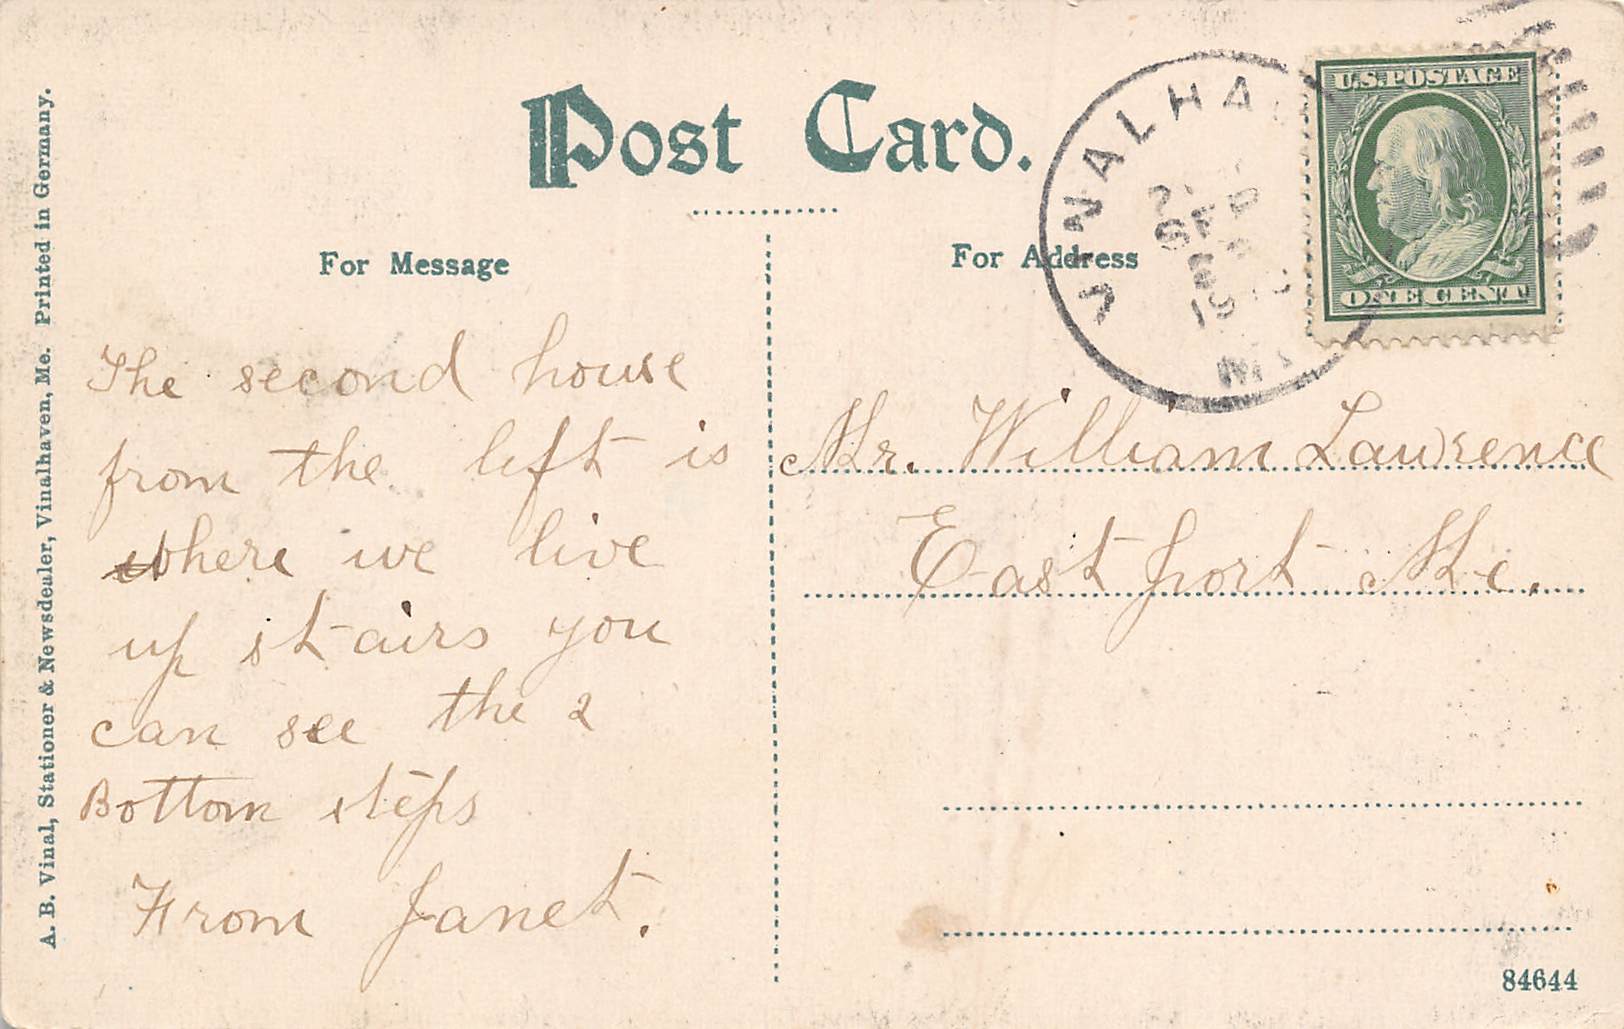 Post Card.
For Message
For Address
A. B. Vinal, Stationer & Newsdealer, Vinalhaven, Me. Printed in Germany.
U.S. POSTAGE
ONE CENT
VINALHA
The second house
from the left is
where we live
up stairs you
can see the 2
Bottom steps
From Janet.
Mr. William Lawrence
Eastport Me.
84644